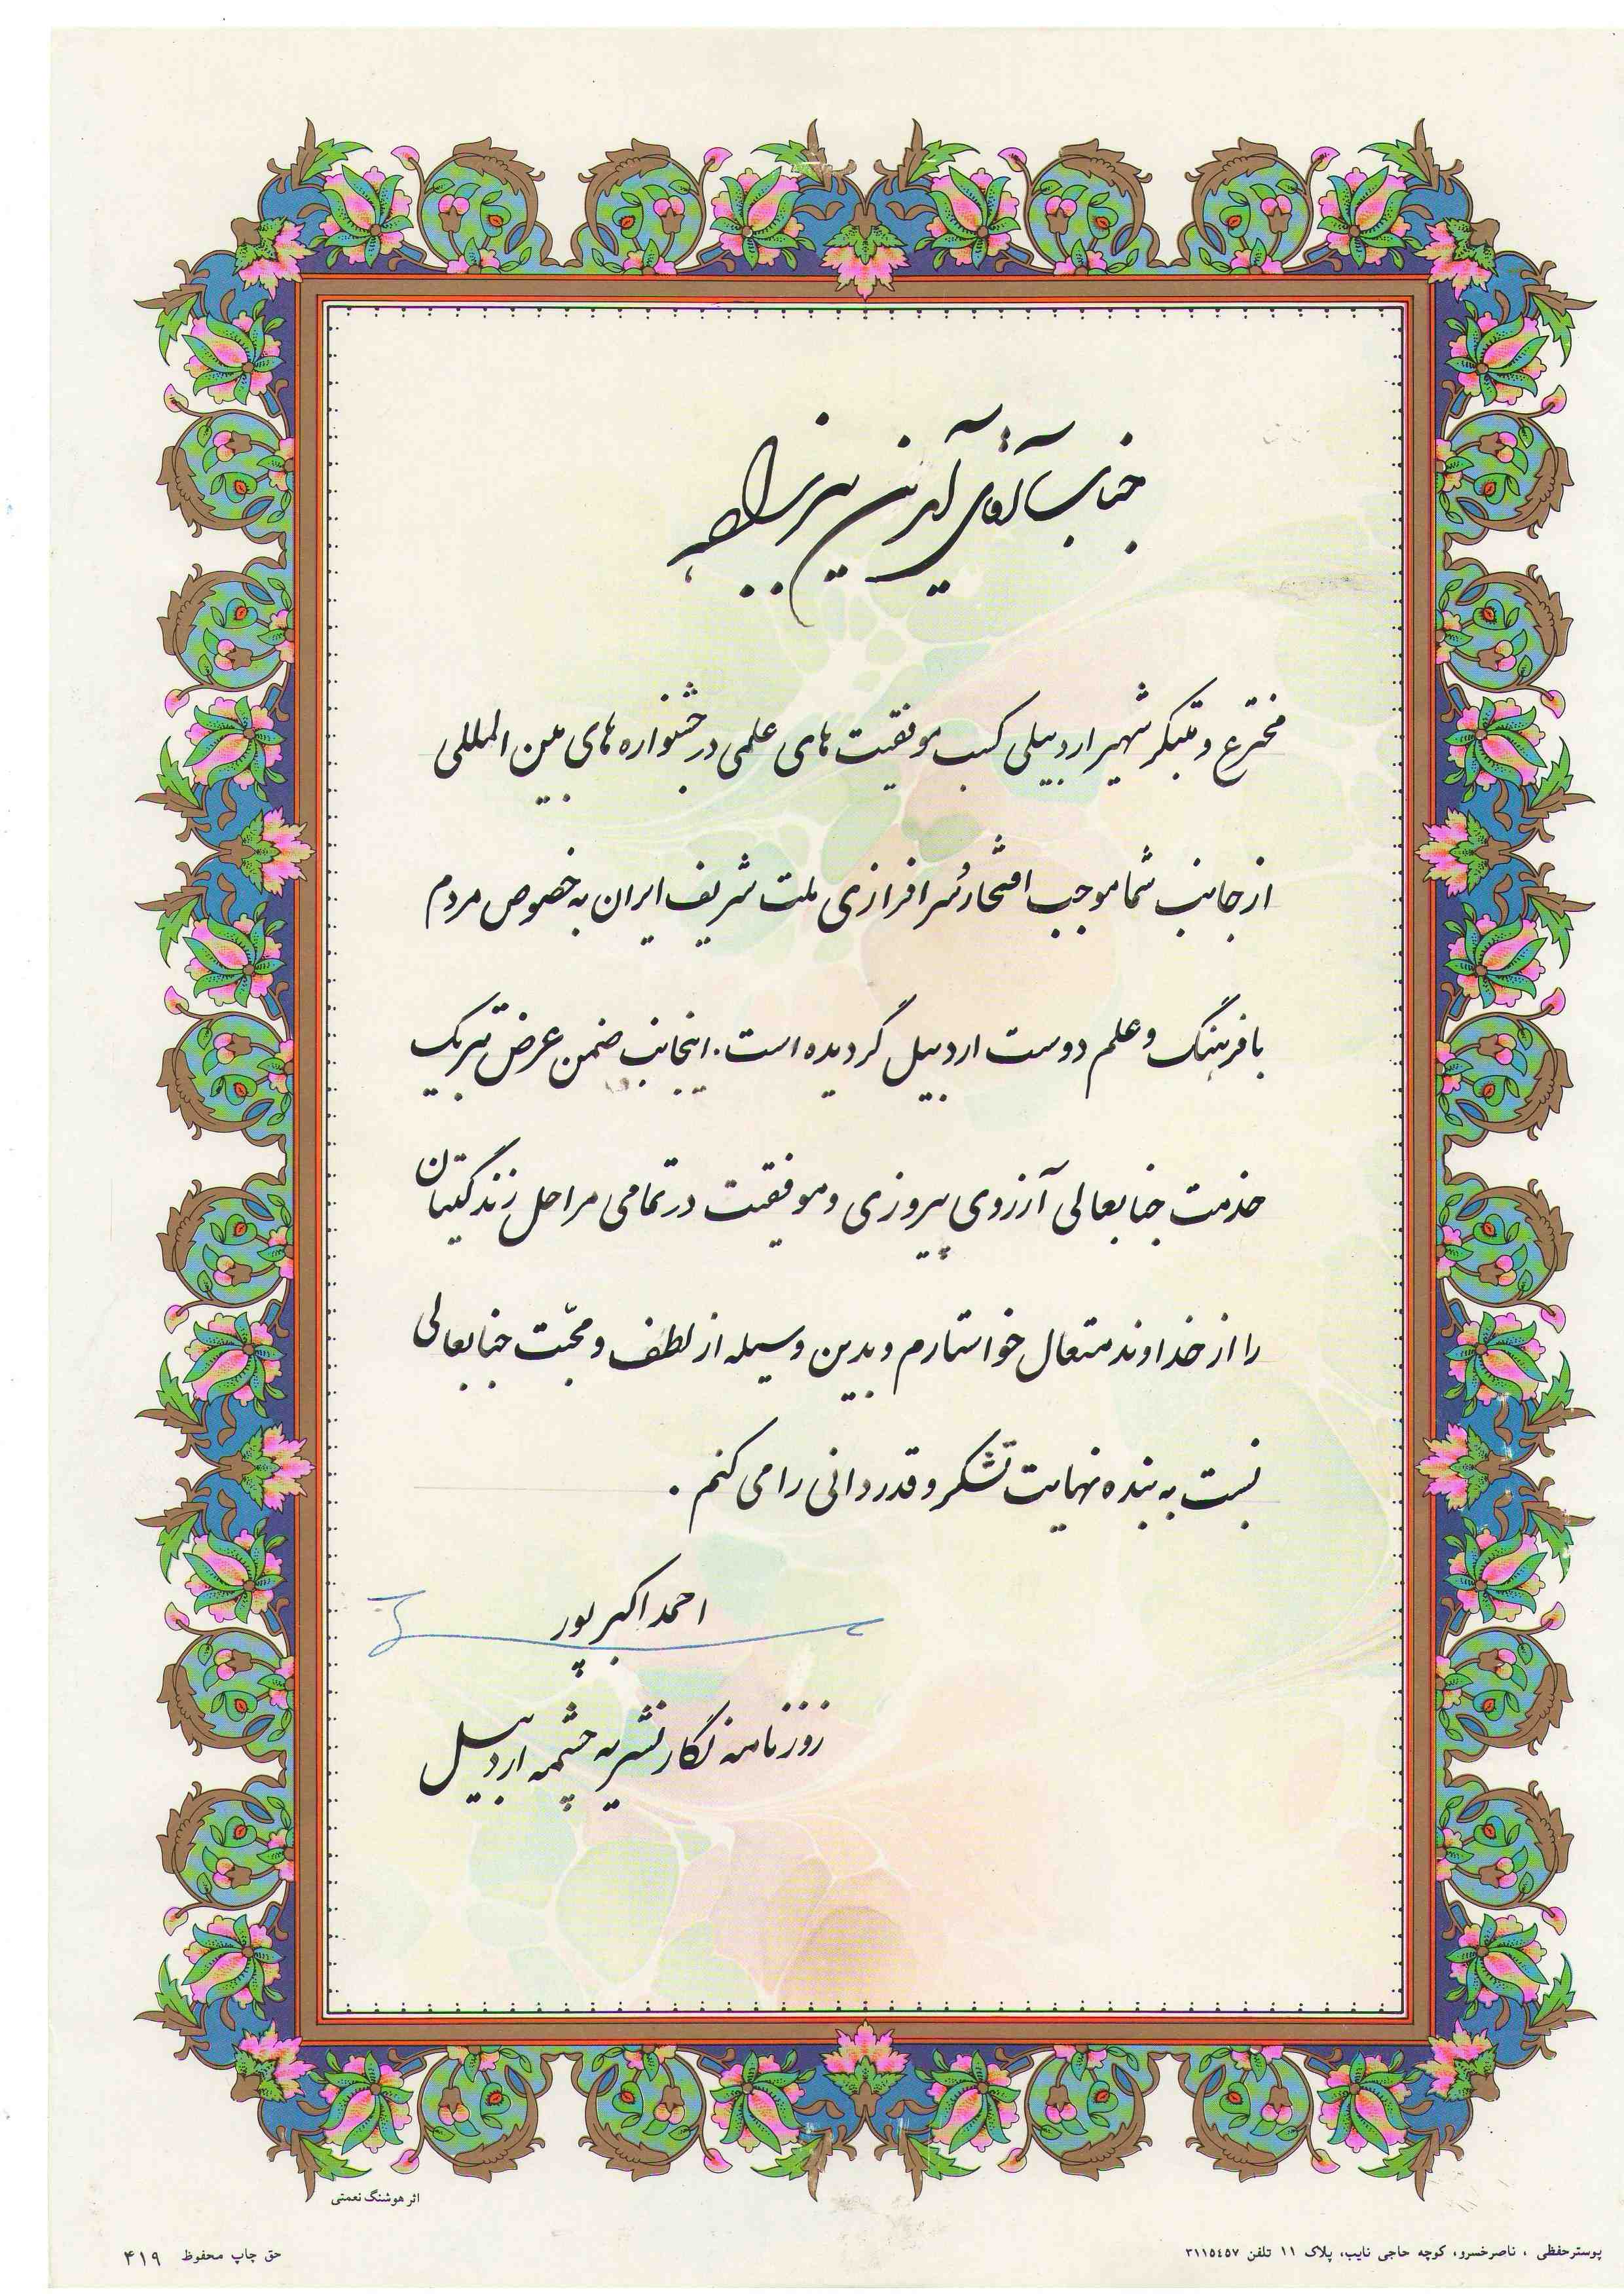 جناب آقای آیدین
مخترع و مبتکر شهیر اردبیلی کسب موفقیت های علمی در جشنواره های بین المللی
از جانب شما موجب افتخار و سرافرازی ملت شریف ایران به خصوص مردم
با فرهنگ و علم دوست اردبیل گردیده است. اینجانب ضمن عرض تبریک
خدمت جنابعالی آرزوی پیروزی و موفقیت در تمامی مراحل زندگیتان
را از خداوند متعال خواستارم و بدین وسیله از لطف و محبّت جنابعالی
نسبت به بنده نهایت تشکّر و قدردانی را می کنم.
احمد اکبرپور
روزنامه نگار نشریه چشمه اردبیل
اثر هوشنگ نعمتی
پوستر حفظی ، ناصرخسرو، کوچه حاجی نایب، پلاک ۱۱ تلفن ۳۱۱۵۴۵۷
حق چاپ محفوظ ۴۱۹